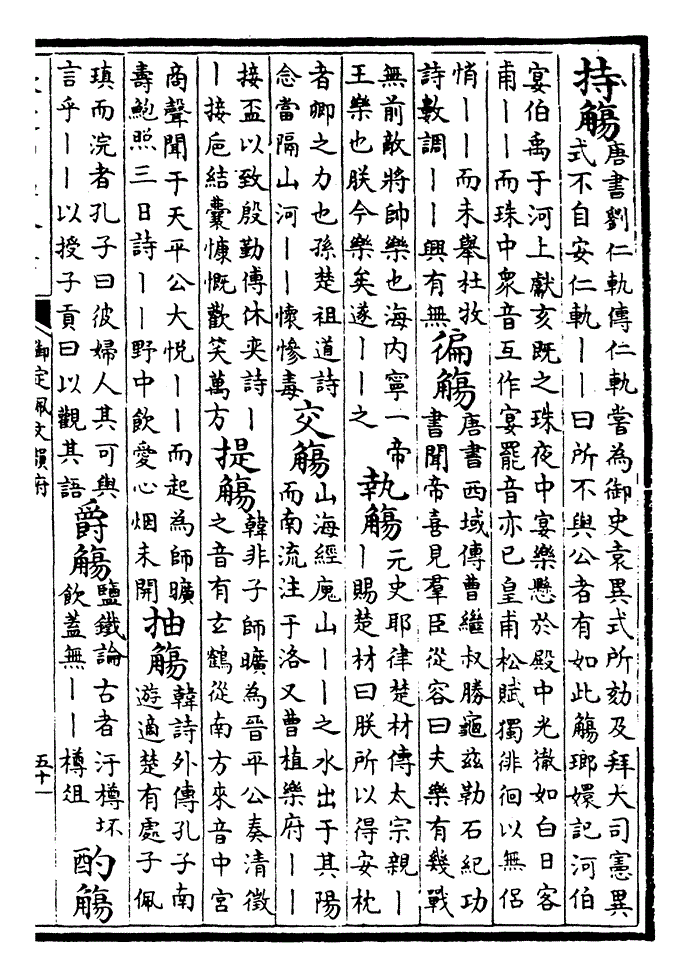 持觴
唐書劉仁軌傳仁軌嘗為御史袁異式所劾及拜大司憲異
式不自安仁軌丨丨曰所不與公者有如此觴瑯嬛記河伯
宴伯禹于河上獻亥既之珠夜中宴樂懸於殿中光徹如白日客
甫丨丨而珠中衆音互作宴罷音亦已皇甫松賦獨徘徊以無侶
悄丨丨而未舉杜牧
詩數調丨丨興有無
徧觴
唐書西域傳曹繼叔勝龜兹勒石紀功
書聞帝喜見羣臣從容曰夫樂有幾戰
無前敵將帥樂也海内寧一帝
王樂也朕今樂矣遂丨丨之
執觴
元史耶律楚材傳太宗親丨
丨賜楚材曰朕所以得安枕
者卿之力也孫楚祖道詩
念當隔山河丨丨懷慘毒
交觴
山海經廆山丨丨之水出于其陽
而南流注于洛又曹植樂府丨丨
接盃以致殷勤傅休奕詩丨
丨接巵結囊慷慨歡笑萬方
提觴
韓非子師曠為晉平公奏清徵
之音有玄鶴從南方來音中宮
商聲聞于天平公大悦丨丨而起為師曠
壽鮑照三日詩丨丨野中飲愛心烟未開
抽觴
韓詩外傳孔子南
遊適楚有處子佩
瑱而浣者孔子曰彼婦人其可與
言乎丨丨以授子貢曰以觀其語
爵觴
鹽鐵論古者汙樽坏
飲蓋無丨丨樽俎
酌觴
御定佩文韻府
五十一